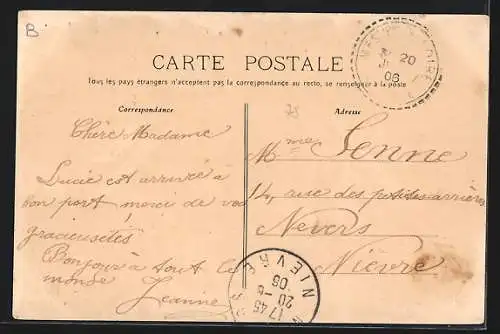 B
CARTE POSTALE
Tous les pays étrangers n'acceptent pas la correspondance au recto, se renseigner à la poste
Correspondance
78
Adresse
20
06
Chère Madame
Lucie est arrivée à
bon port, merci de vos
gracieusetés
Bonjour à tout le
monde Jeanne
Mme Senne
14, rue des petites arrières
Nevers
Nièvre
NIEVRE
17 45
20 - 8
06